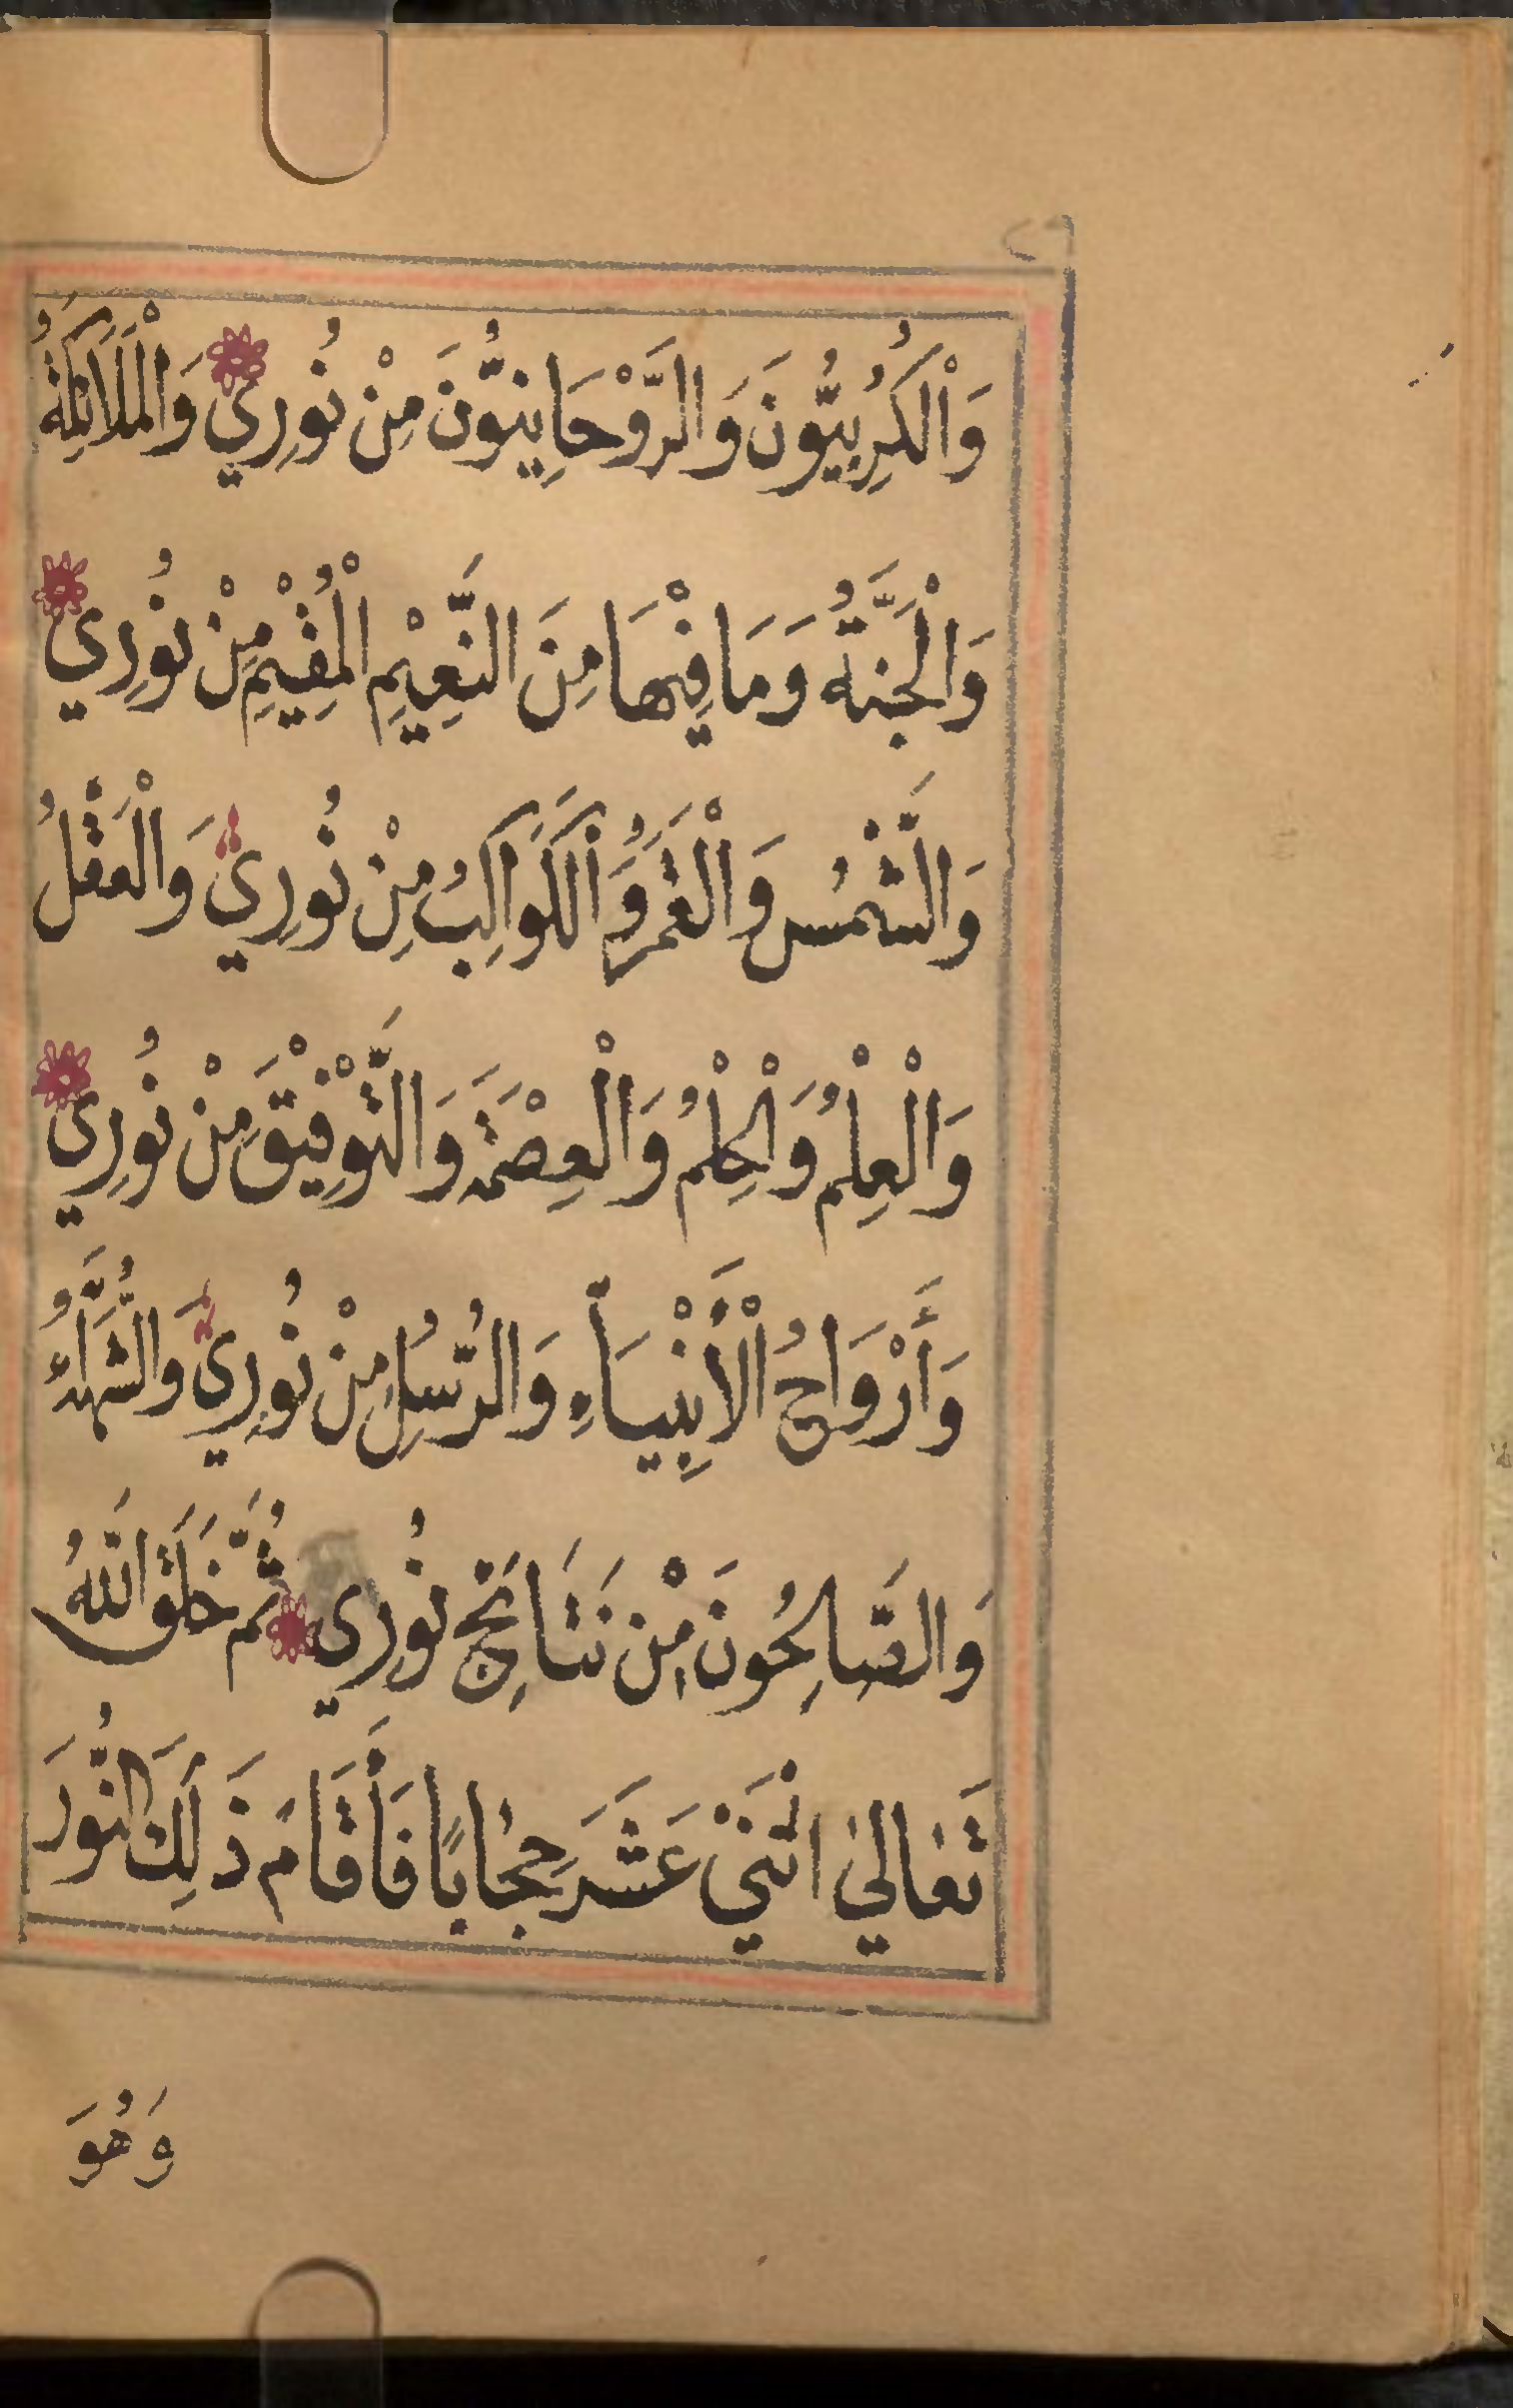 وَالْكُرُبِيُّونَ وَالرَّوْحَانِيُّونَ مِنْ نُورِي وَالْمَلَائِكَةُ
وَالْجَنَّةُ وَمَا فِيْهَا مِنَ النَّعِيْمِ الْمُقِيْمِ مِنْ نُورِي
وَالشَّمْسُ وَالْقَمَرُ وَالْكَوَاكِبُ مِنْ نُورِي وَالْعَقْلُ
وَالْعِلْمُ وَالْحِلْمُ وَالْعِصْمَةَ وَالتَّوْفِيْقَ مِنْ نُورِي
وَأَرْوَاحُ الْأَنْبِيَاءِ وَالرُّسُلِ مِنْ نُورِي وَالشُّهَدَاءُ
وَالصَّالِحُونَ مِنْ نَتَائِج نُورِي ثُمَّ خَلَقَ اللَّهُ
تَعَالٰى اثْنَيْ عَشَرَ حِجَابًا فَأَقَامَ ذَلِكَ النُّورَ
وَهُوَ